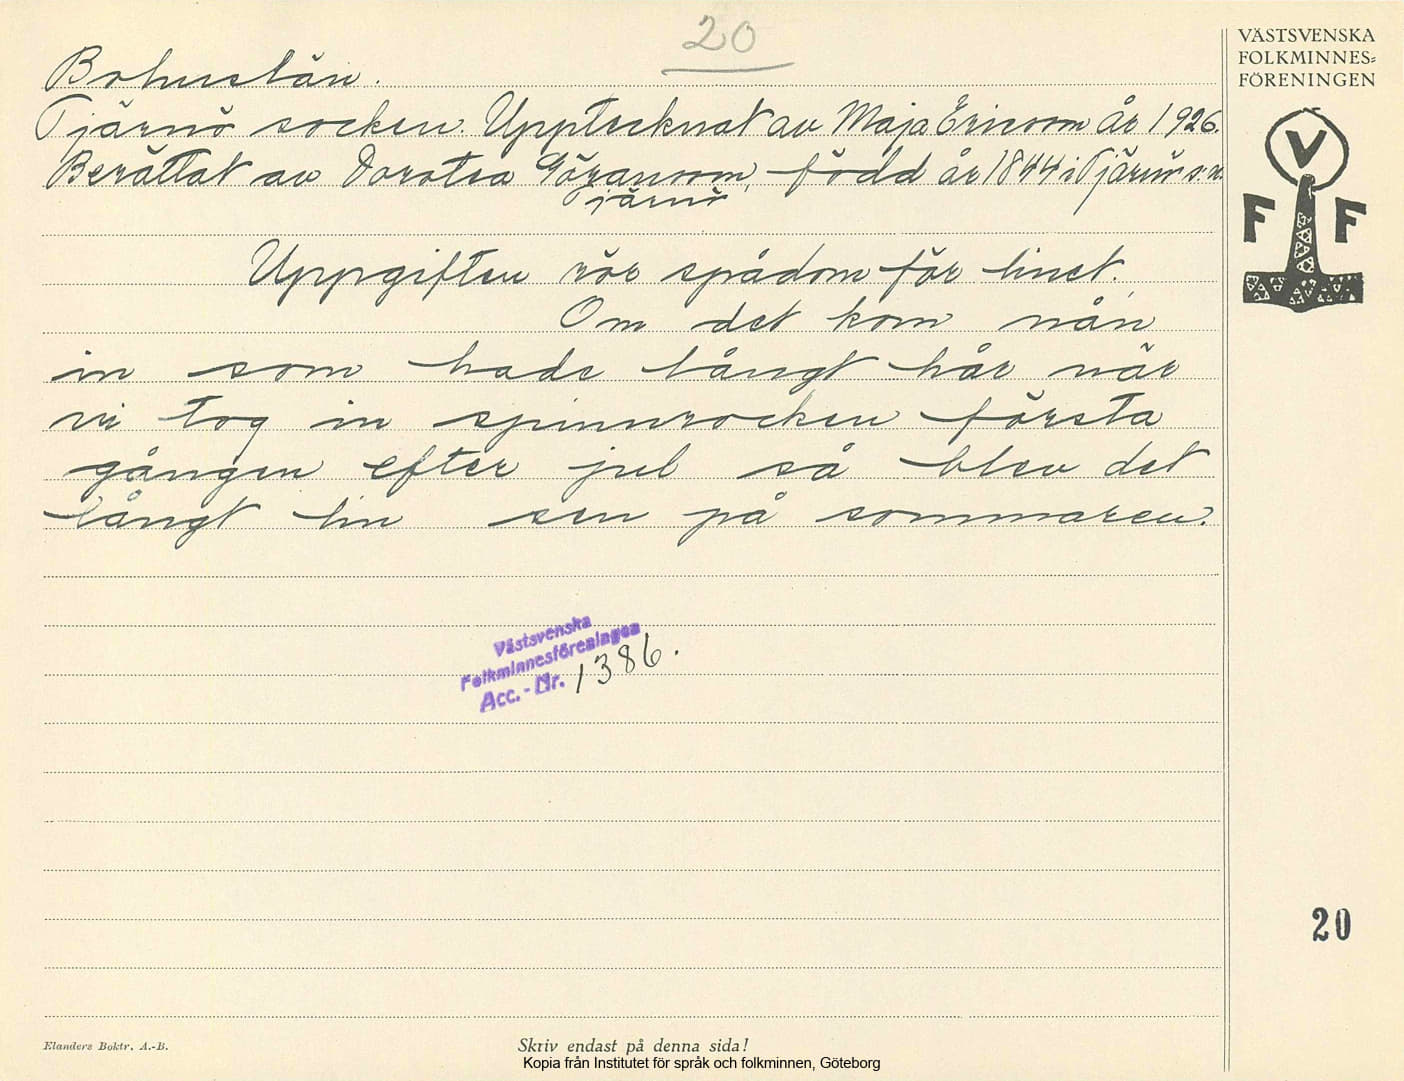 20
VÄSTSVENSKA
FOLKMINNES=
FÖRENINGEN
V
F F
Bohuslän.
Tjärnö socken. Upptecknat av Maja Ericson år 1926.
Berättat av Dorotea Göransson, född år 1844 i Tjärnö s:n.
Tjärnö
Uppgiften rör spådom för linet.
Om det kom nån
in som hade långt hår när
vi tog in spinnrocken första
gången efter jul så blev det
långt lin sen på sommaren.
Västsvenska
Folkminnesföreningen
Acc.-Nr. 1386.
20
Elanders Boktr. A.-B.
Skriv endast på denna sida!
Kopia från Institutet för språk och folkminnen, Göteborg